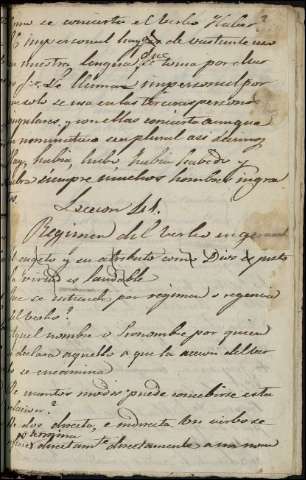 mo se concierta el verbo Haber?
impersonal hay de bastante uso
nuestra lengua, se toma por
Se llama impersonal por
solo se usa en las terceras personas
singulares, y con ellas concierta aunque
nominativo sea plural asi decimos
Hay, habia, hubo, habia habido y
habra siempre muchos hombres ingra
Leccion 41.
Regimen del Verbo en general
sugeto y su atributo como Dios es justo
la virtud es laudable
Que se entiende por regimen o regencia
del verbo?
Aquel nombre o Pronombre por quien
declara aquello a que la accion del ver
se encamina
De cuantos modos puede concebirse esta
De dos, directo, e indirecto Un verbo se
directamente a un nom